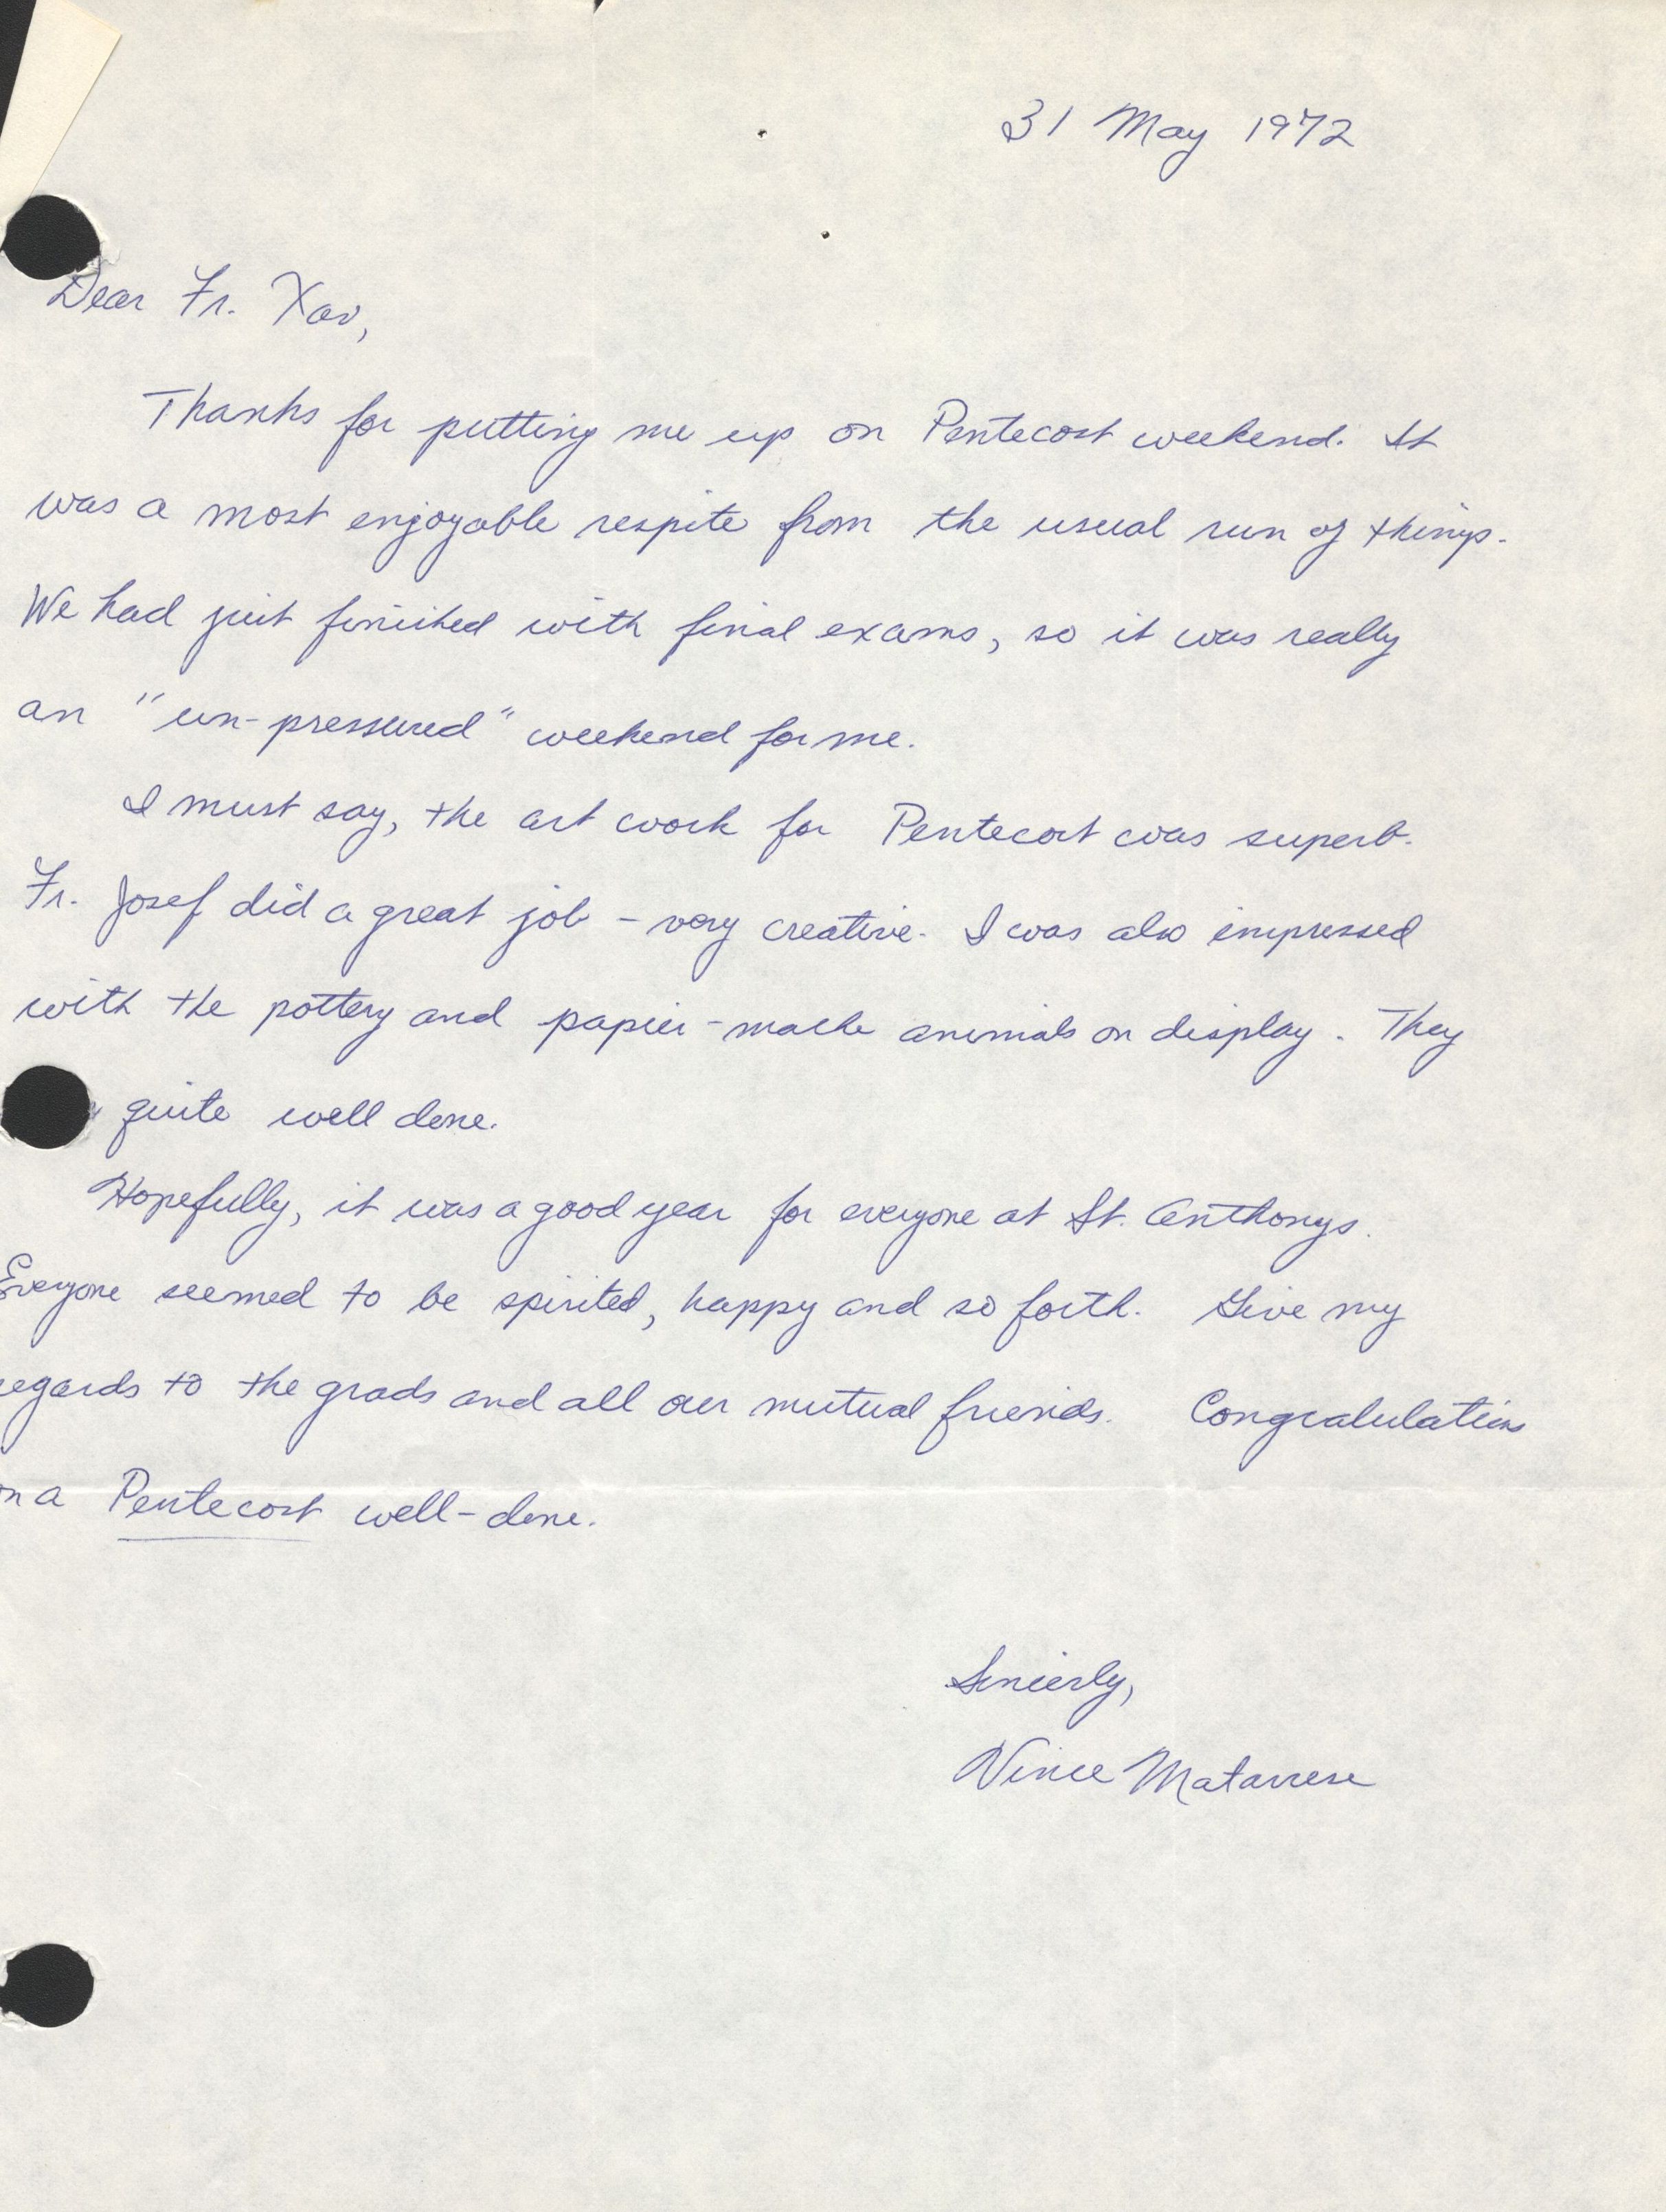 31 May 1972
Dear Fr. Xav,
Thanks for putting me up on Pentecost weekend. It
was a most enjoyable respite from the usual run of things.
We had just finished with final exams, so it was really
an "un-pressured" weekend for me.
I must say, the art work for Pentecost was superb.
Fr. Josef did a great job - very creative. I was also impressed
with the pottery and papier-mache animals on display. They
quite well done.
Hopefully, it was a good year for everyone at St. Anthonys.
Everyone seemed to be spirited, happy and so forth. Give my
regards to the grads and all our mutual friends. Congratulations
on a Pentecost well-done.
Sincerly,
Vince Matarrese